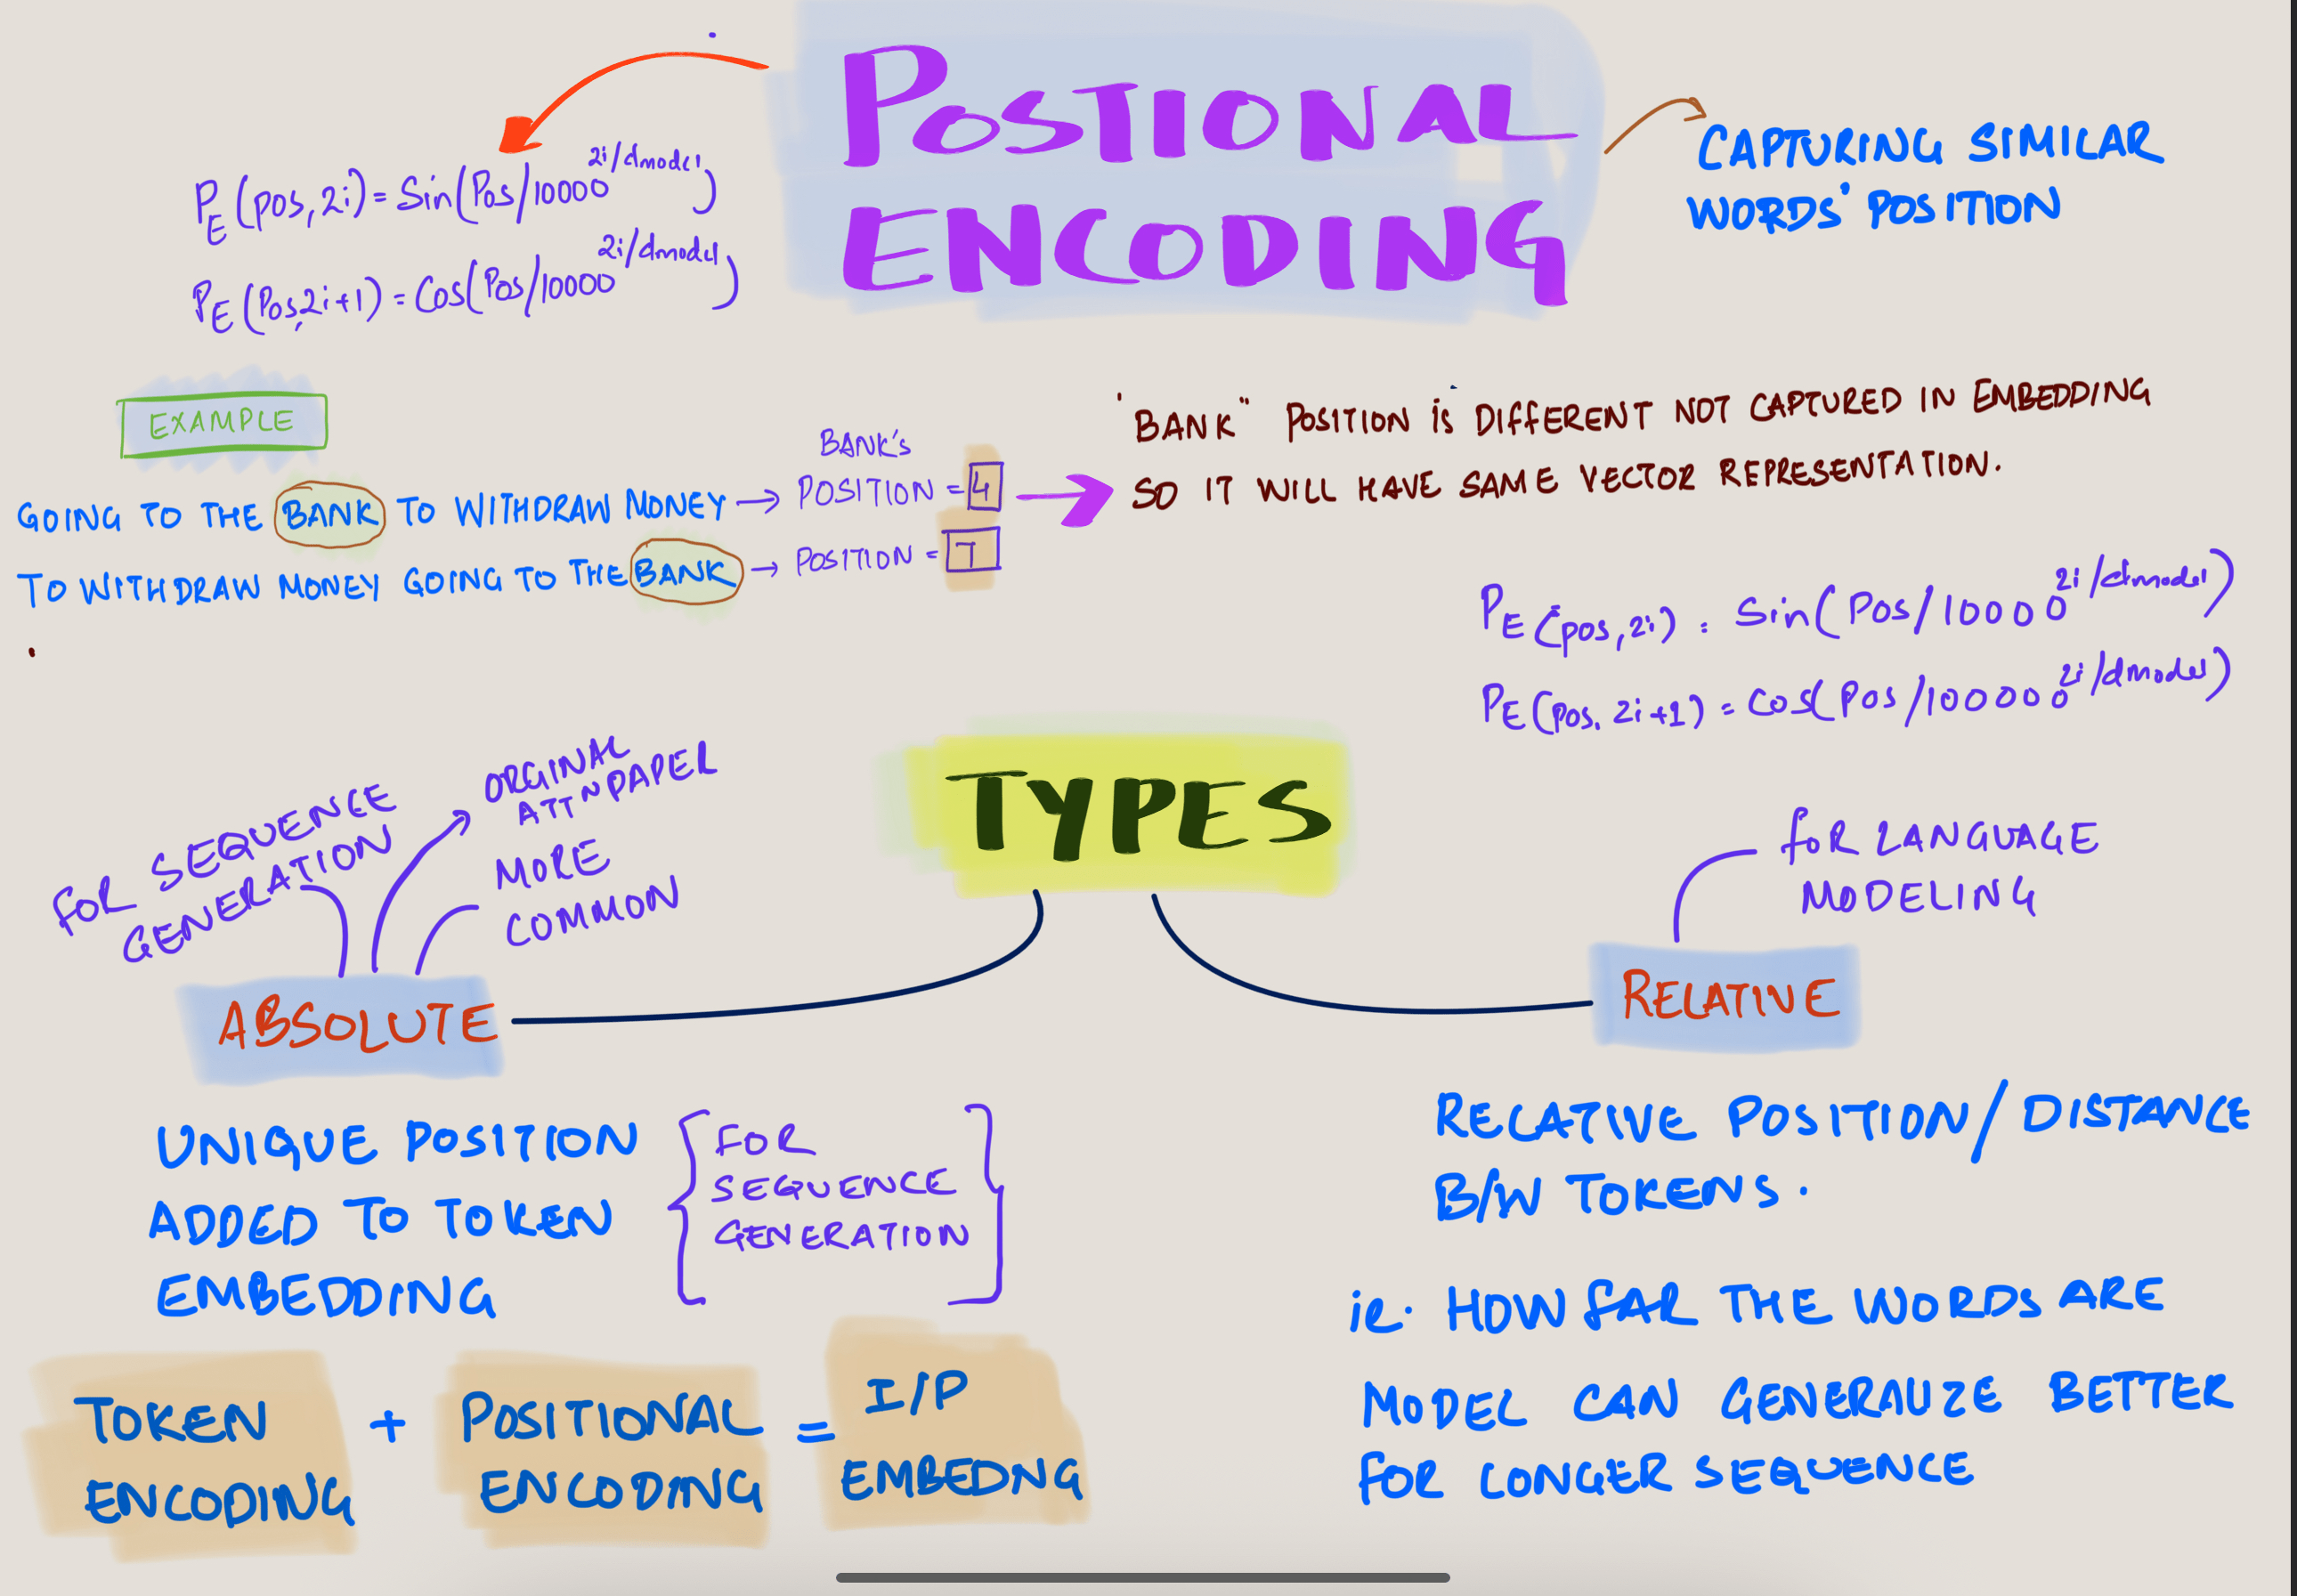 POSTIONAL
ENCODING
CAPTURING SIMILAR
WORDS' POSITION
PE (pos, 2i) = Sin(Pos/10000^2i/dmodel)
PE (Pos, 2i+1) = Cos(Pos/10000^2i/dmodel)
EXAMPLE
GOING TO THE BANK TO WITHDRAW MONEY → BANK's POSITION = 4
TO WITHDRAW MONEY GOING TO THE BANK → POSITION = 7
'BANK" POSITION is DIFFERENT NOT CAPTURED IN EMBEDDING
SO IT WILL HAVE SAME VECTOR REPRESENTATION.
PE (pos, 2i) = Sin(Pos/10000^2i/dmodel)
PE (pos, 2i+1) = Cos(Pos/100000^2i/dmodel)
TYPES
FOR SEQUENCE
GENERATION
ORGINAL
ATTN PAPER
MORE
COMMON
ABSOLUTE
UNIQUE POSITION
ADDED TO TOKEN
EMBEDDING
FOR
SEQUENCE
GENERATION
TOKEN
ENCODING
+
POSITIONAL
ENCODING
=
I/P
EMBEDNG
FOR LANGUAGE
MODELING
RELATIVE
RELATIVE POSITION/DISTANCE
B/W TOKENS.
ie. HOW FAR THE WORDS ARE
MODEL CAN GENERALIZE BETTER
FOR LONGER SEQUENCE